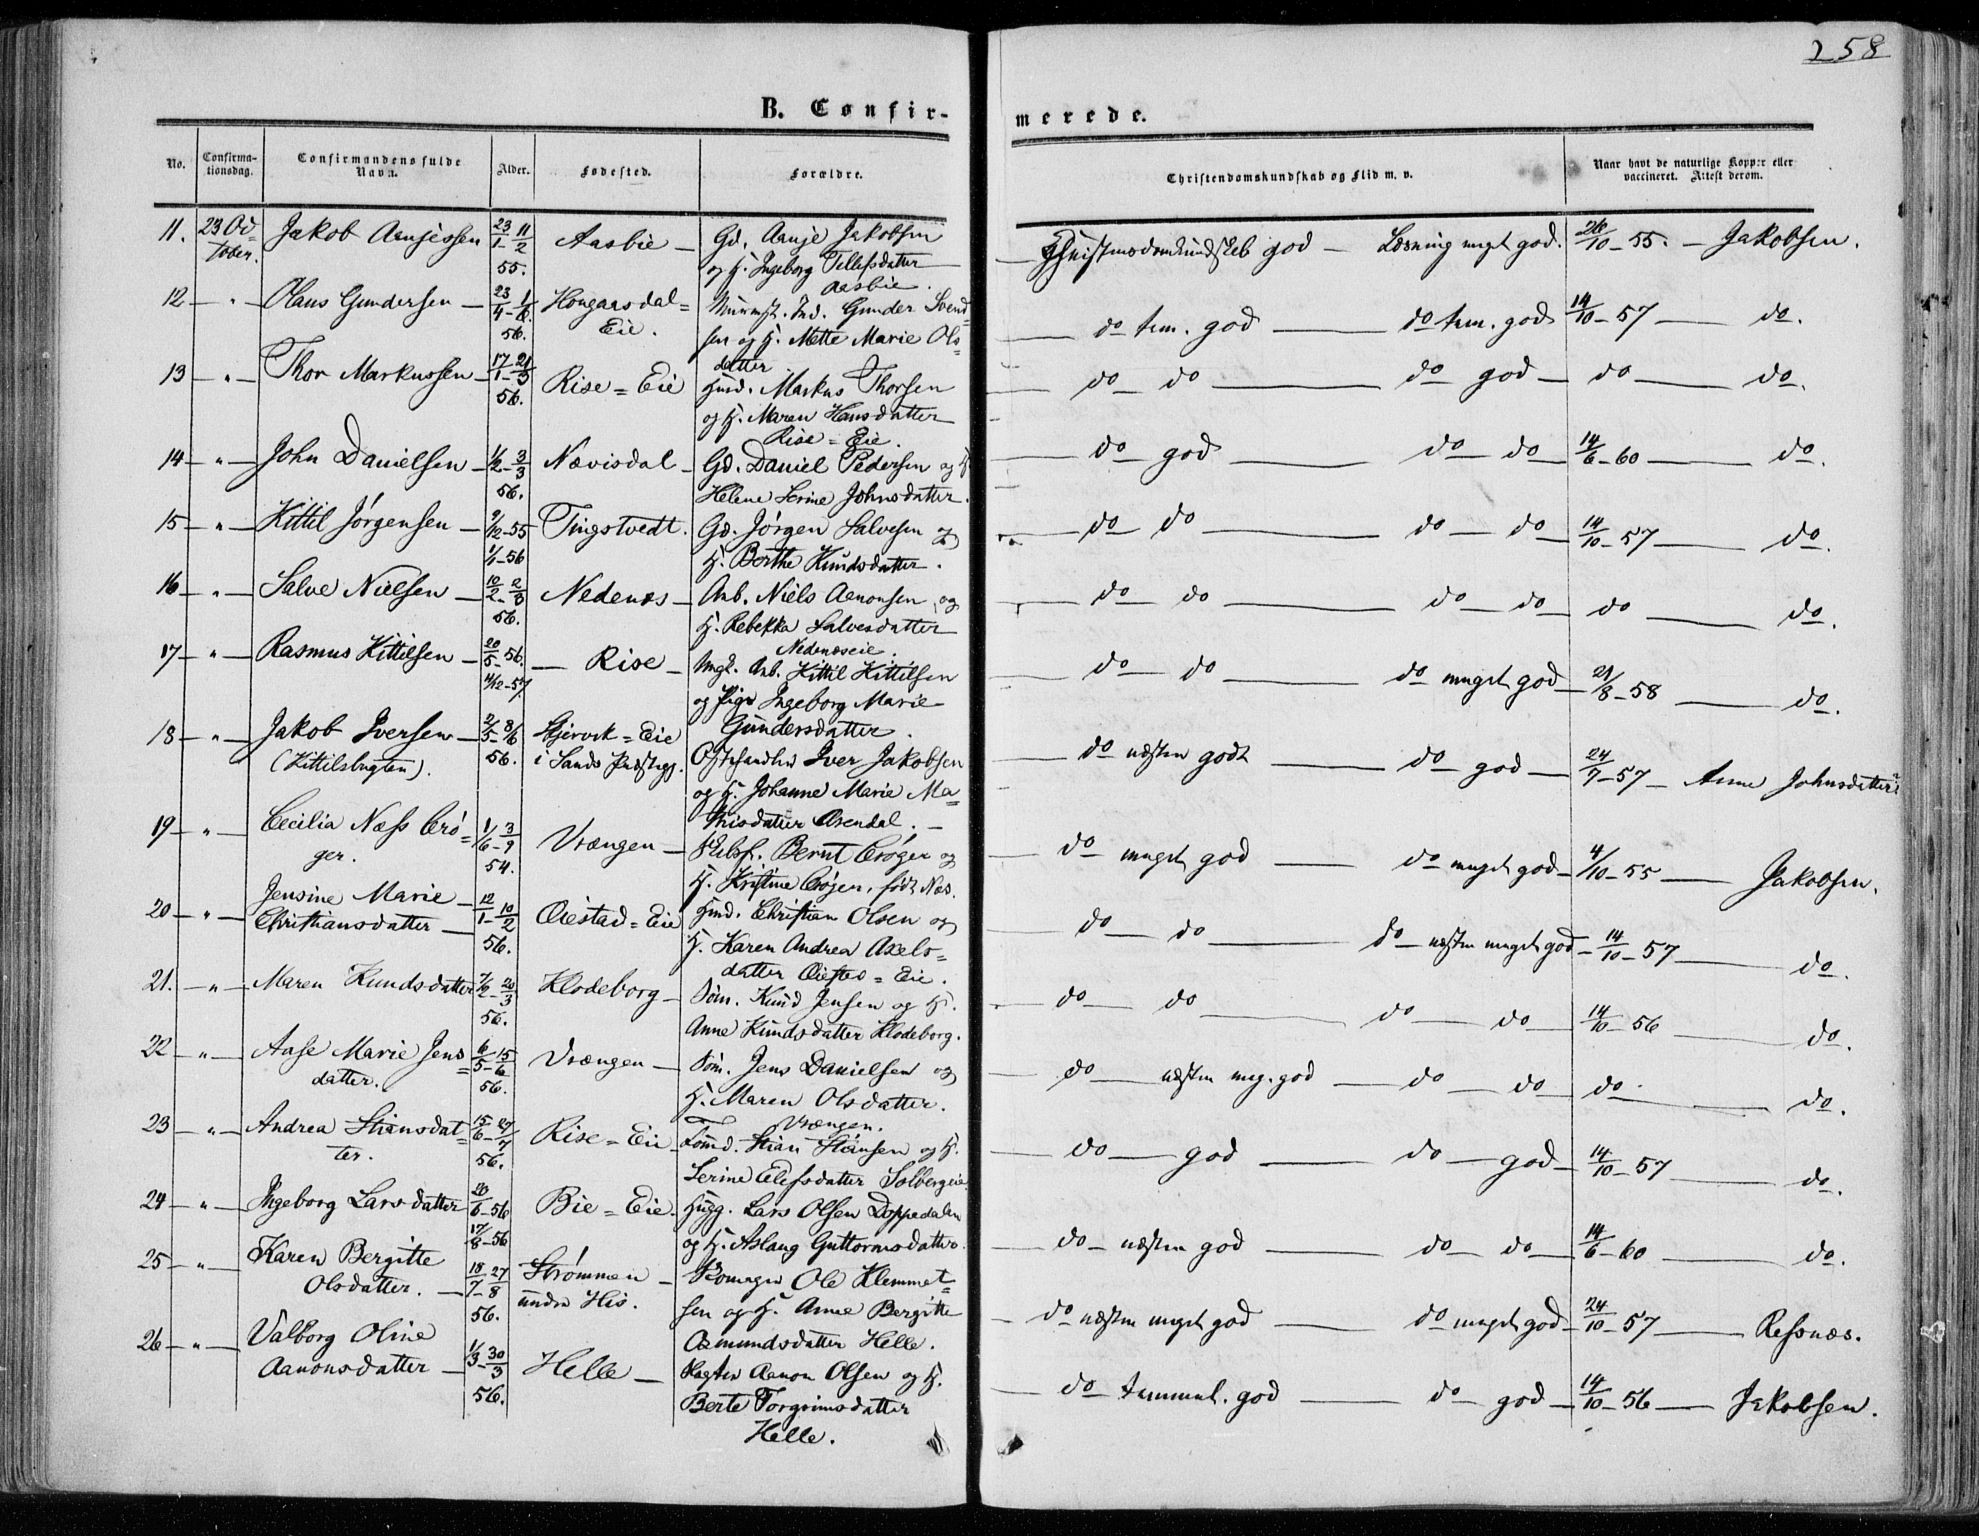 258
B. Confir-
merede.
No.
Confirma-
tionsdag.
Confirmandens fulde
Navn.
Alder.
Fødested.
Forældre.
Christendomskundskab og Flid m. v.
Naar havt de naturlige Kopper eller
vaccineret. Attest derom.
11. 23 Oc- Jakob Aanjessen 23/1 11/2 Aasbie - Gd. Aanje Jakobsen
tober. 55. og H. Ingeborg Tellefsdatter
Aasbie.
Christendomskundskab god - Læsning meget god. 26/10-55. - Jakobsen.
12 - " - Olaus Gundersen - 23/4 - 1/6 Hougaasdal= Gunder Svend=
56. Eie. sen og H. Mette Marie Ols=
datter
do tem. god do tem. god 14/10-57 - do.
13 - " - Thor Markussen - 17/1 - 21/3 Rise = Eie Husmd. Markus Thorsen
56. og H. Maren Hansdatter
Rise = Eie.
do do do god - do - do.
14 - " - John Danielsen - 1/2 - 3/3 Nævisdal - Gd. Daniel Pedersen og H.
56. Helene Serine Johnsdatter.
do god do - do 14/6-60 - do.
15 - " - Kittil Jörgensen - 9/12-55 Tingstvedt. Gd. Jörgen Salvesen og
1/1-56 H. Berthe Knudsdatter.
do do do - do 14/10-57 - do.
16 - " - Salve Nielsen - 10/2 - 2/3 Nedenæs - Arb. Niels Aanonsen og
56. H. Rebekka Salvesdatter
Nedenæseie.
do do do - do do - do.
17 - " - Rasmus Kittilsen - 20/5-56. - Rise - Ungk. Arb. Kittil Kittilsen
4/12-57 og Pige Ingeborg Marie
Gundersdatter.
do - do do meget god - 21/8-58 - do.
18 - " - Jakob Iversen - 2/5 - 8/6 = Eie Iver Jakobsen
(Kittilsbugten). 56. i Sands Præstegj. og H. Johanne Marie Ma=
thisdatter Arendal. -
do næsten godt do - god - 24/7-57 - Anne Johnsdatter
19 - " - Cecilia Næss Crö= 1/6 - 3/9 Vrængen - Bernt Cröger og
ger. 54. H. Kristine Cröger, födt Næs.
do meget god do meget god - 4/10-55 - Jakobsen.
20 - " - Jensine Marie - 12/1 - 10/2 Oiestad = Eie Husmd. Christian Olsen og
Christiansdatter - 56. H. Karen Andrea Axels=
datter Oiested = Eie.
do - do do - næsten meget god - 14/10-57 - do.
21. - " - Maren Knudsdatter 7/2 - 20/3 Klodeborg - Söm. Knud Jensen og H.
56. Anne Knudsdatter Klodeborg.
do do do - do 14/10-56 - do.
22 - " - Aase Marie Jens= 6/5 - 15/6 Vrængen - Söm. Jens Danielsen og
datter. 56. H. Maren Olsdatter.
Vrængen.
do - næsten meg. god - do - do do - do.
23 - " - Andrea Stiansdat= 15/6 - 27/7 Rise = Eie Stian Stiansen og H.
ter. 56. Serine Ellefsdatter Solbergeie.
do - god do - god - 14/10-57 - do.
24 - " - Ingeborg Larsdatter 26/6-56 Bie = Eie. Lars Olsen Doppedalen
17/8-56 og H. Aslaug Guttormsdatter.
do - næsten god do - do 14/6-60 - do.
25 - " - Karen Bergitte 18/7 - 27/8 Strömmen - Ole Klemmet=
Olsdatter. - 56. under His. sen og H. Anne Bergitte
Asmundsdatter Helle.
do næsten meget god do meget god - 24/10-57 - Refsnæs.
26 - " - Valborg Oline 1/3 - 30/3 Helle - Aanon Olsen og H.
Aanonsdatter - 56. Berte Torgrimsdatter
Helle.
do temmel. god do god - 14/10-56 - Jakobsen.